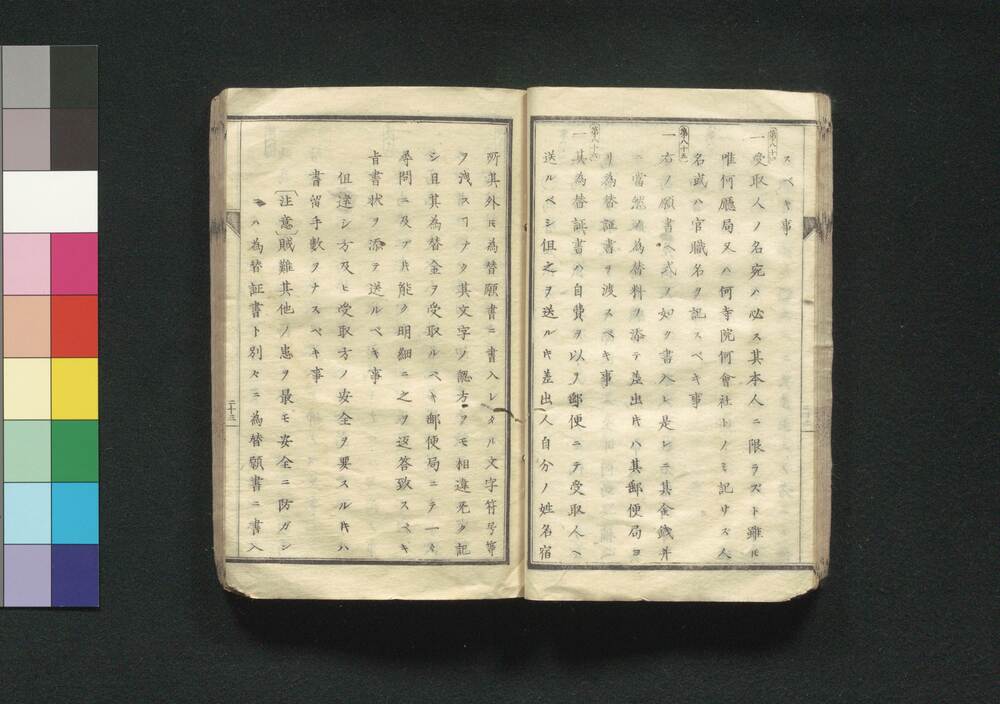 スベキ事
第八十四
一受取人ノ名宛ハ必ス其本人ニ限ラズト雖𪜈
唯何廳局又ハ何寺院何會社トノミ記サズ人
名或ハ官職名ヲ記スベキ事
第八十五
一右ノ願書ヘ式ノ如ク書入レ是レニ其金錢并
ニ當然ノ為替料ヲ添テ差出片ハ其郵便局ヨ
リ為替証書ヲ渡スベキ事
第八十六
一其為替証書ハ自費ヲ以テ郵便ニテ受取人ヘ
送ルベシ但之ヲ送ル片差出人自分ノ姓名宿
所其外𪜈為替願書ニ書入レタル文字符号等
ヲ洩スヿナク其文字ノ認方ヲモ相違无ク記
シ且其為替金ヲ受取ルベキ郵便局ニテ一々
尋問ニ及ブ𪜈能ク明細ニ之ヲ返答致スベキ
旨書状ヲ添テ送ルベキ事
但遠シ方及ヒ受取方ノ安全ヲ要スル片ハ
書留手數ヲナスベキ事
〔注意〕賊難其他ノ患ヲ最モ安全ニ防ガン
ハ為替証書ト別々ニ為替願書ニ書入
二十三